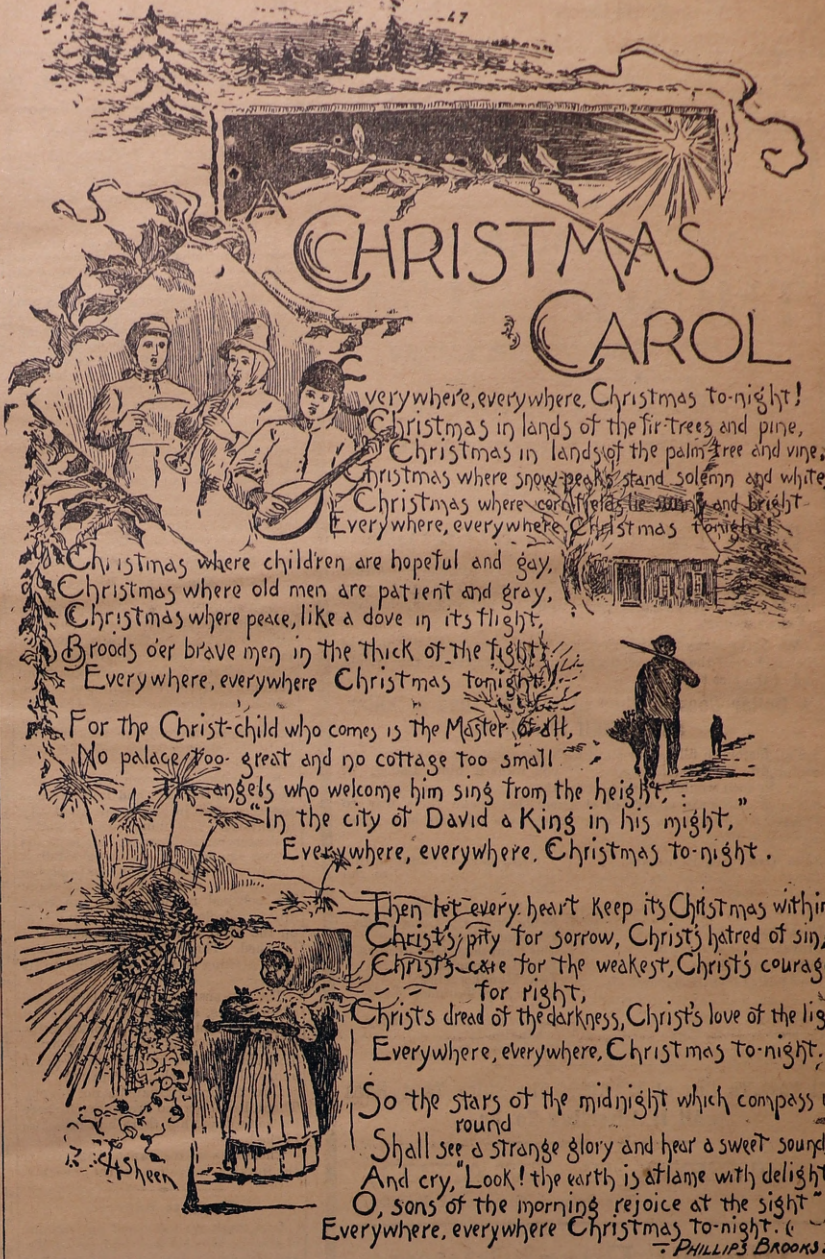 47
A
CHRISTMAS
CAROL
verywhere, everywhere, Christmas to-night!
Christmas in lands of the fir-trees and pine,
Christmas in lands of the palm-tree and vine,
Christmas where snow-peaks stand solemn and white
Christmas where cornfields lie sunny and bright
Everywhere, everywhere Christmas tonight!
Christmas where children are hopeful and gay,
Christmas where old men are patient and gray,
Christmas where peace, like a dove in its flight,
Broods o'er brave men in the thick of the fight;
Everywhere, everywhere Christmas tonight!
For the Christ-child who comes is the Master of all,
No palace too great and no cottage too small
The angels who welcome him sing from the height,
"In the city of David a King in his might,"
Everywhere, everywhere, Christmas to-night.
Then let every heart keep its Christmas within
Christ's pity for sorrow, Christ's hatred of sin,
Christ's care for the weakest, Christ's courag
for right,
Christs dread of the darkness, Christ's love of the lig
Everywhere, everywhere, Christmas to-night.
So the stars of the midnight which compass u
round
Shall see a strange glory and hear a sweet sound
And cry, "Look! the earth is aflame with delight
O, sons of the morning rejoice at the sight"
Everywhere, everywhere Christmas to-night.
- PHILLIPS BROOKS.
Sheen